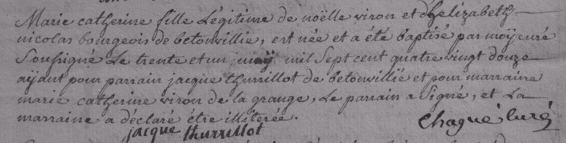 Marie catherine fille Légitime de noëlle viron et d'helizabeth
nicolas bourgeois de betonvillié, est née et a été baptisé par moÿ curé
Soussigné Le trente et un maÿ mil Sept cent quatre vingt douze
aÿant pour parrain jacque thurrillot de betonvillié et pour marraine
marie catherine viron de la grange, Le parrain a Signé, et La
marraine a déclaré être illiterée.
jacque thurrillot
Chagué Curé